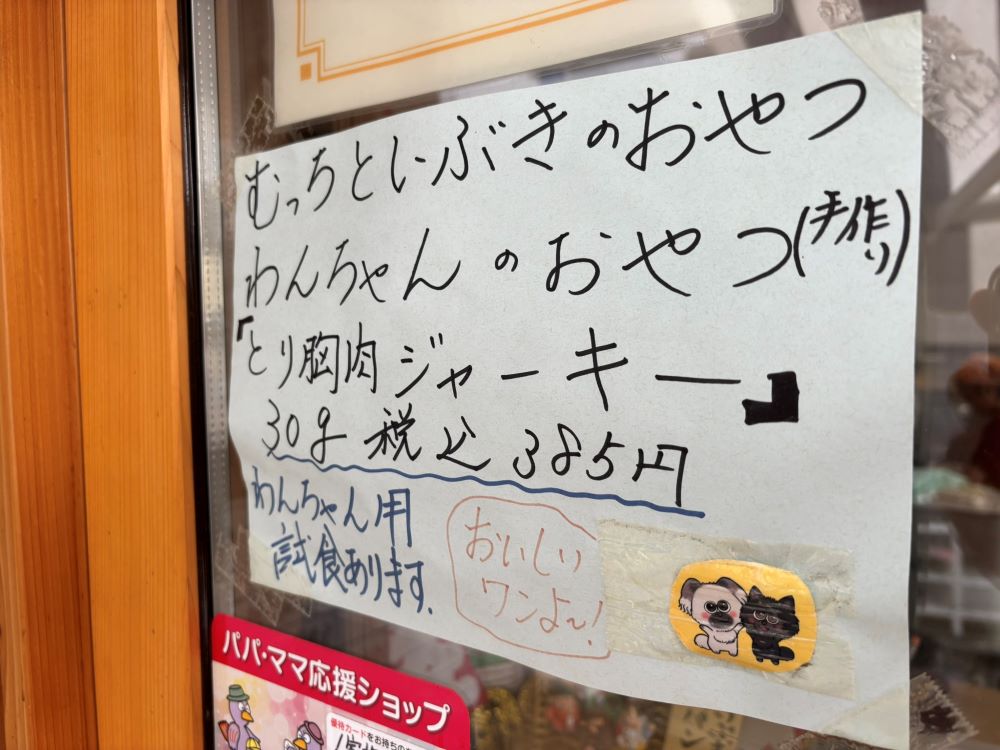 むっちといぶきのおやつ
わんちゃんのおやつ(手作り)
『とり胸肉ジャーキー』
30g 税込 385円
わんちゃん用
試食あります.
おいしい
ワンよ~!
パパ・ママ応援ショップ
優待カードをお持ちの